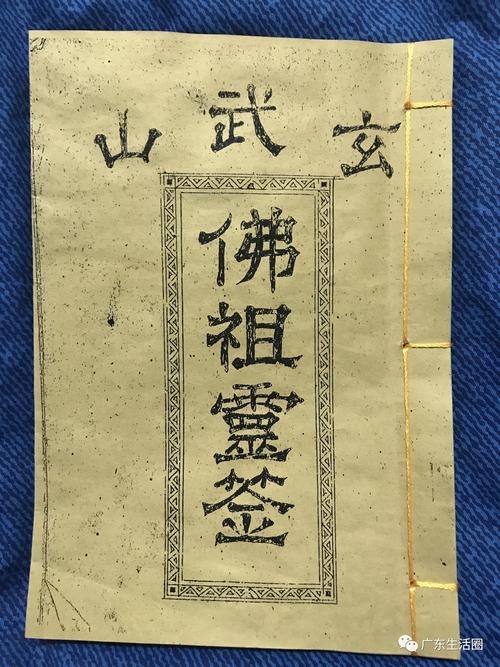 玄武山
佛祖靈签
广东生活圈